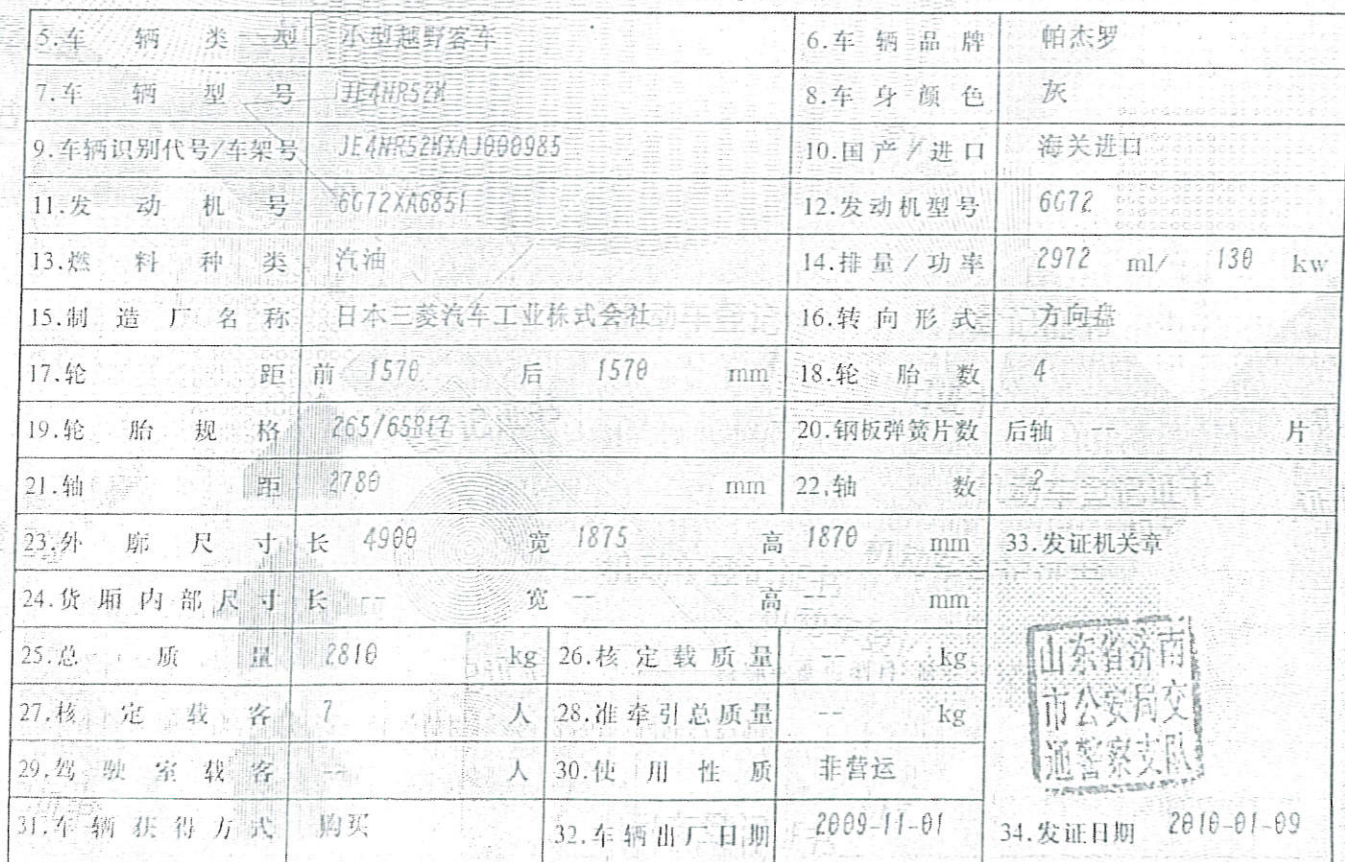 5.车辆类型 小型越野客车 6.车辆品牌 帕杰罗
7.车辆型号 JE4NR52M 8.车身颜色 灰
9.车辆识别代号/车架号 JE4NR52MXAJ000985 10.国产/进口 海关进口
11.发动机号 6G72XA6851 12.发动机型号 6G72
13.燃料种类 汽油 14.排量/功率 2972 ml/ 130 kw
15.制造厂名称 日本三菱汽车工业株式会社 16.转向形式 方向盘
17.轮距 前 1570 后 1570 mm 18.轮胎数 4
19.轮胎规格 265/65R17 20.钢板弹簧片数 后轴 -- 片
21.轴距 2780 mm 22.轴数 2
23.外廓尺寸 长 4900 宽 1875 高 1870 mm 33.发证机关章
24.货厢内部尺寸 长 -- 宽 -- 高 -- mm
25.总质量 2810 kg 26.核定载质量 -- kg
27.核定载客 7 人 28.准牵引总质量 -- kg
29.驾驶室载客 -- 人 30.使用性质 非营运
31.车辆获得方式 购买 32.车辆出厂日期 2009-11-01 34.发证日期 2010-01-09
山东省济南
市公安局交
通警察支队